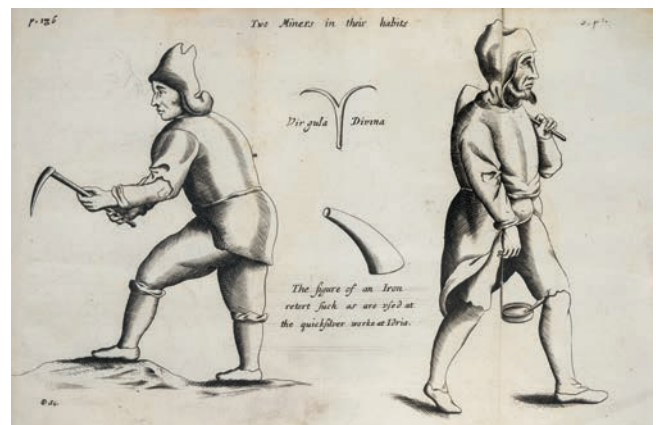 p. 136
Two Miners in their habits
Virgula Divina
The figure of an Iron
retort such as are vsed at
the quicksilver works at Idria.